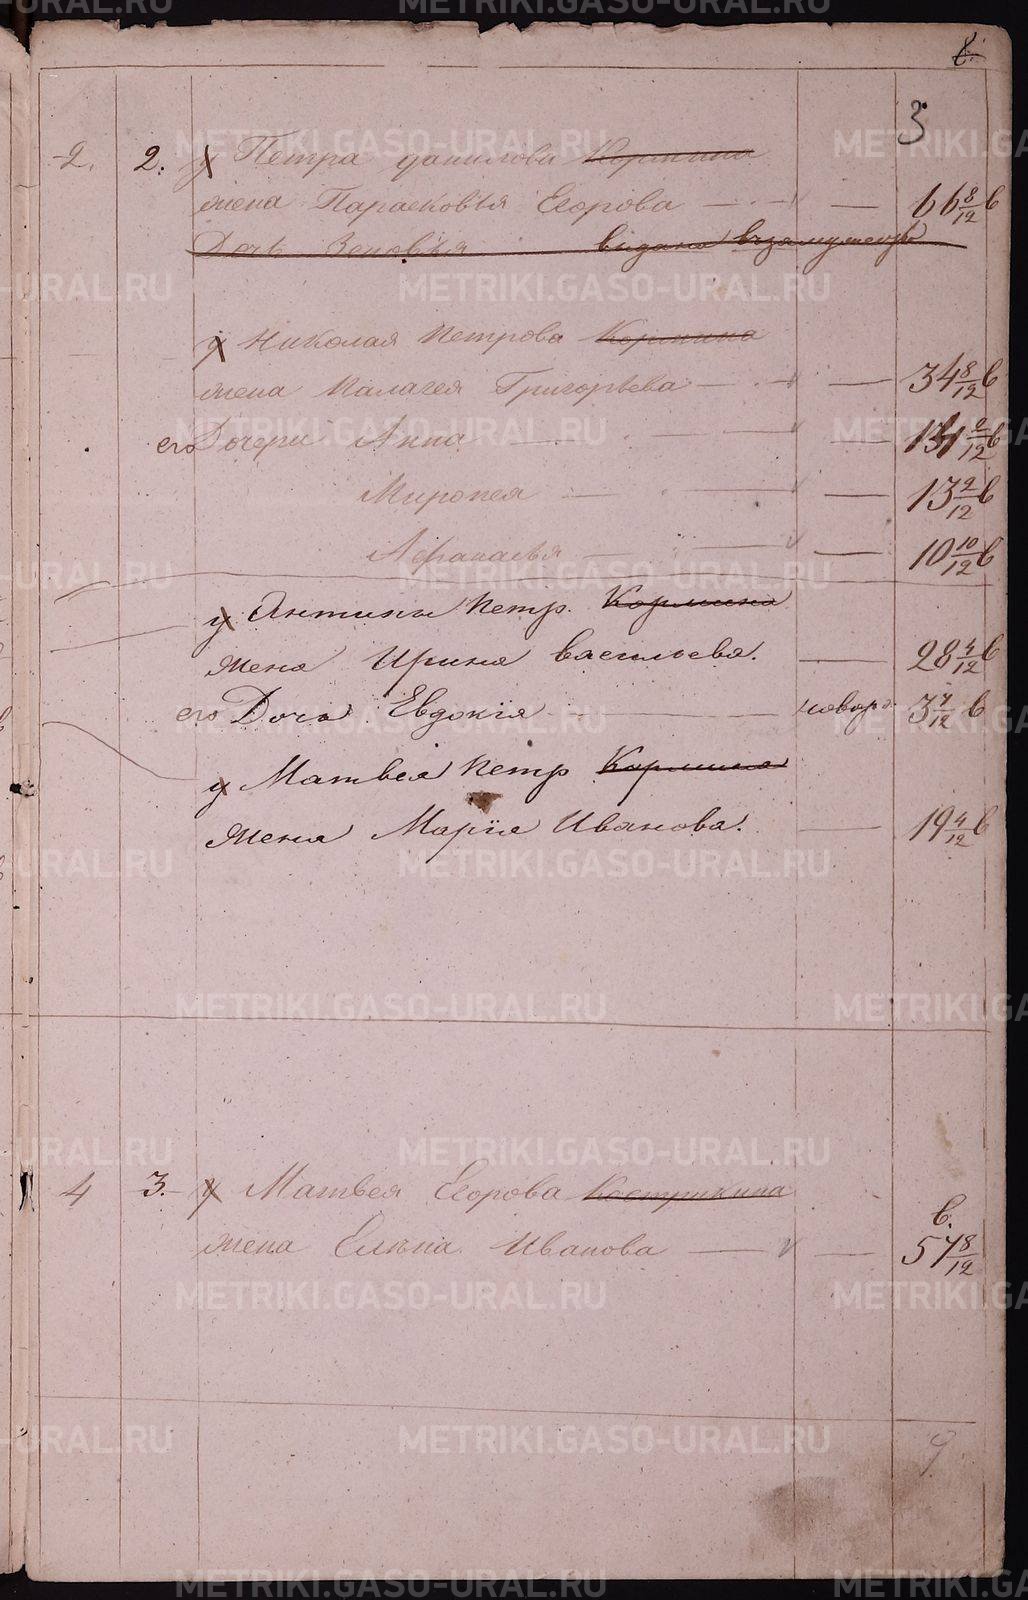 8.
3
2. 2. у Петра Данилова Кормина
жена Парасковья Егорова 66 8/12 в
Дочь Зеновія выдана въ замужство
у Николая Петрова Кормина
жена Палагея Григорьева 34 8/12 в
его Дочери Анна 13 2/12 в
Миропея 13 2/12 в
Афанасья 10 10/12 в
у Антипы Петр. Кормина
жена Ирина Васильева. 28 4/12 в
его Дочь Евдокія новор. 3 7/12 в
у Матвея Петр Кормина
жена Марія Иванова. 19 4/12 в
4 3. у Матвея Егорова Кострикина
в.
жена Елена Иванова 57 8/12
9
METRIKI.GASO-URAL.RU